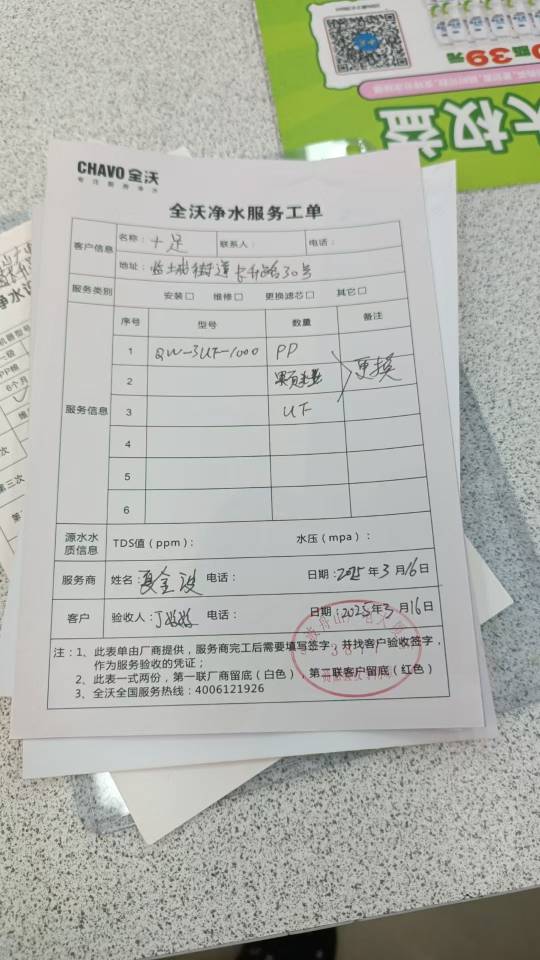 CHAVO 全沃
专注商用净水
全沃净水服务工单
客户信息 名称：十足 联系人： 电话：
地址：临城街道 30号
服务类别 安装□ 维修□ 更换滤芯□ 其它□
服务信息 序号 型号 数量 备注
1 QW-3UF-1000 PP
2 颗粒炭 更换
3 UF
4
5
6
源水水质信息 TDS值（ppm）： 水压（mpa）：
服务商 姓名： 电话： 日期：2025年3月16日
客户 验收人：丁 电话： 日期：2025年3月16日
注：1、此表单由厂商提供，服务商完工后需要填写签字，并找客户验收签字，
作为服务验收的凭证；
2、此表一式两份，第一联厂商留底（白色），第二联客户留底（红色）
3、全沃全国服务热线：4006121926
大权益
39元
6个月
第三次